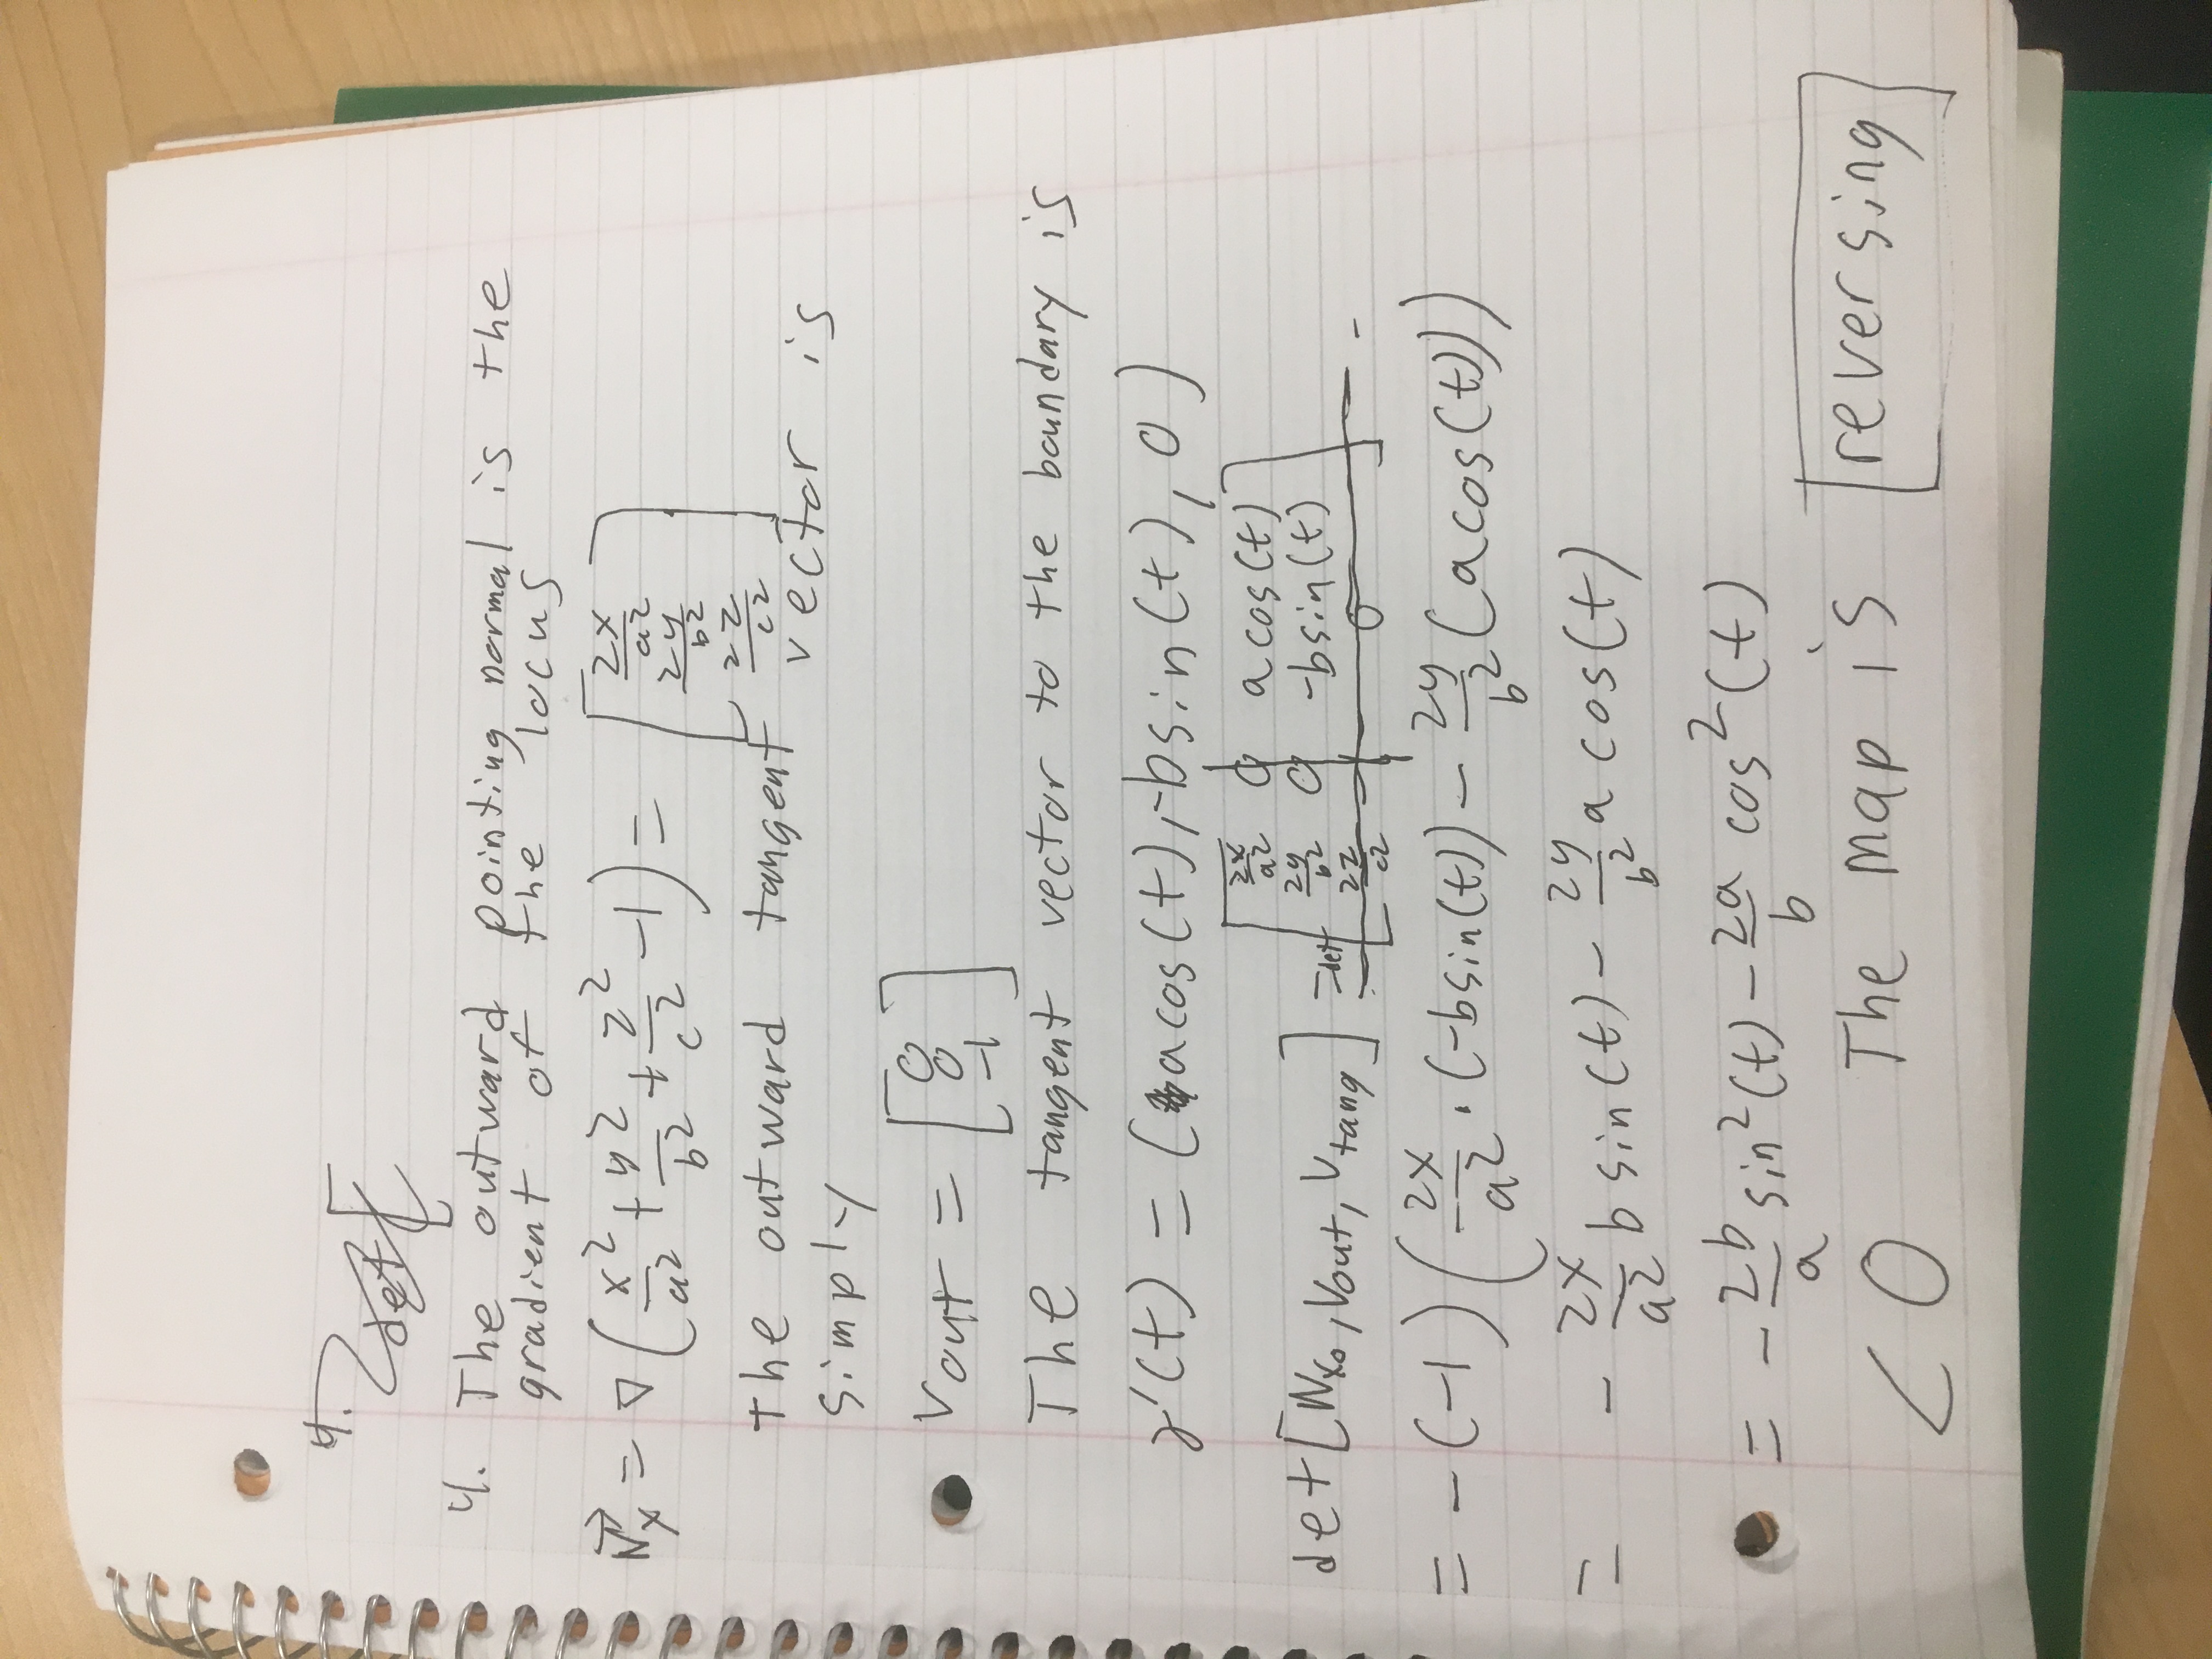 4.
det[
4. The outward pointing normal is the
gradient of the locus
N⃗ₓ = ∇(x²/a² + y²/b² + z²/c² - 1) = [2x/a² 2y/b² 2z/c²]
the outward tangent vector is
simply
Vout = [0 0 -1]
The tangent vector to the boundary is
γ'(t) = (acos(t), -bsin(t), 0)
det[Nx₀, Vout, Vtang] = det [2x/a² 0 acos(t) 2y/b² 0 -bsin(t) 2z/c² -1 0]
= -(-1)(2x/a² · (-bsin(t)) - 2y/b² (acos(t)))
= - 2x/a² b sin(t) - 2y/b² a cos(t)
= - 2b/a sin²(t) - 2a/b cos²(t)
< 0 The map is reversing